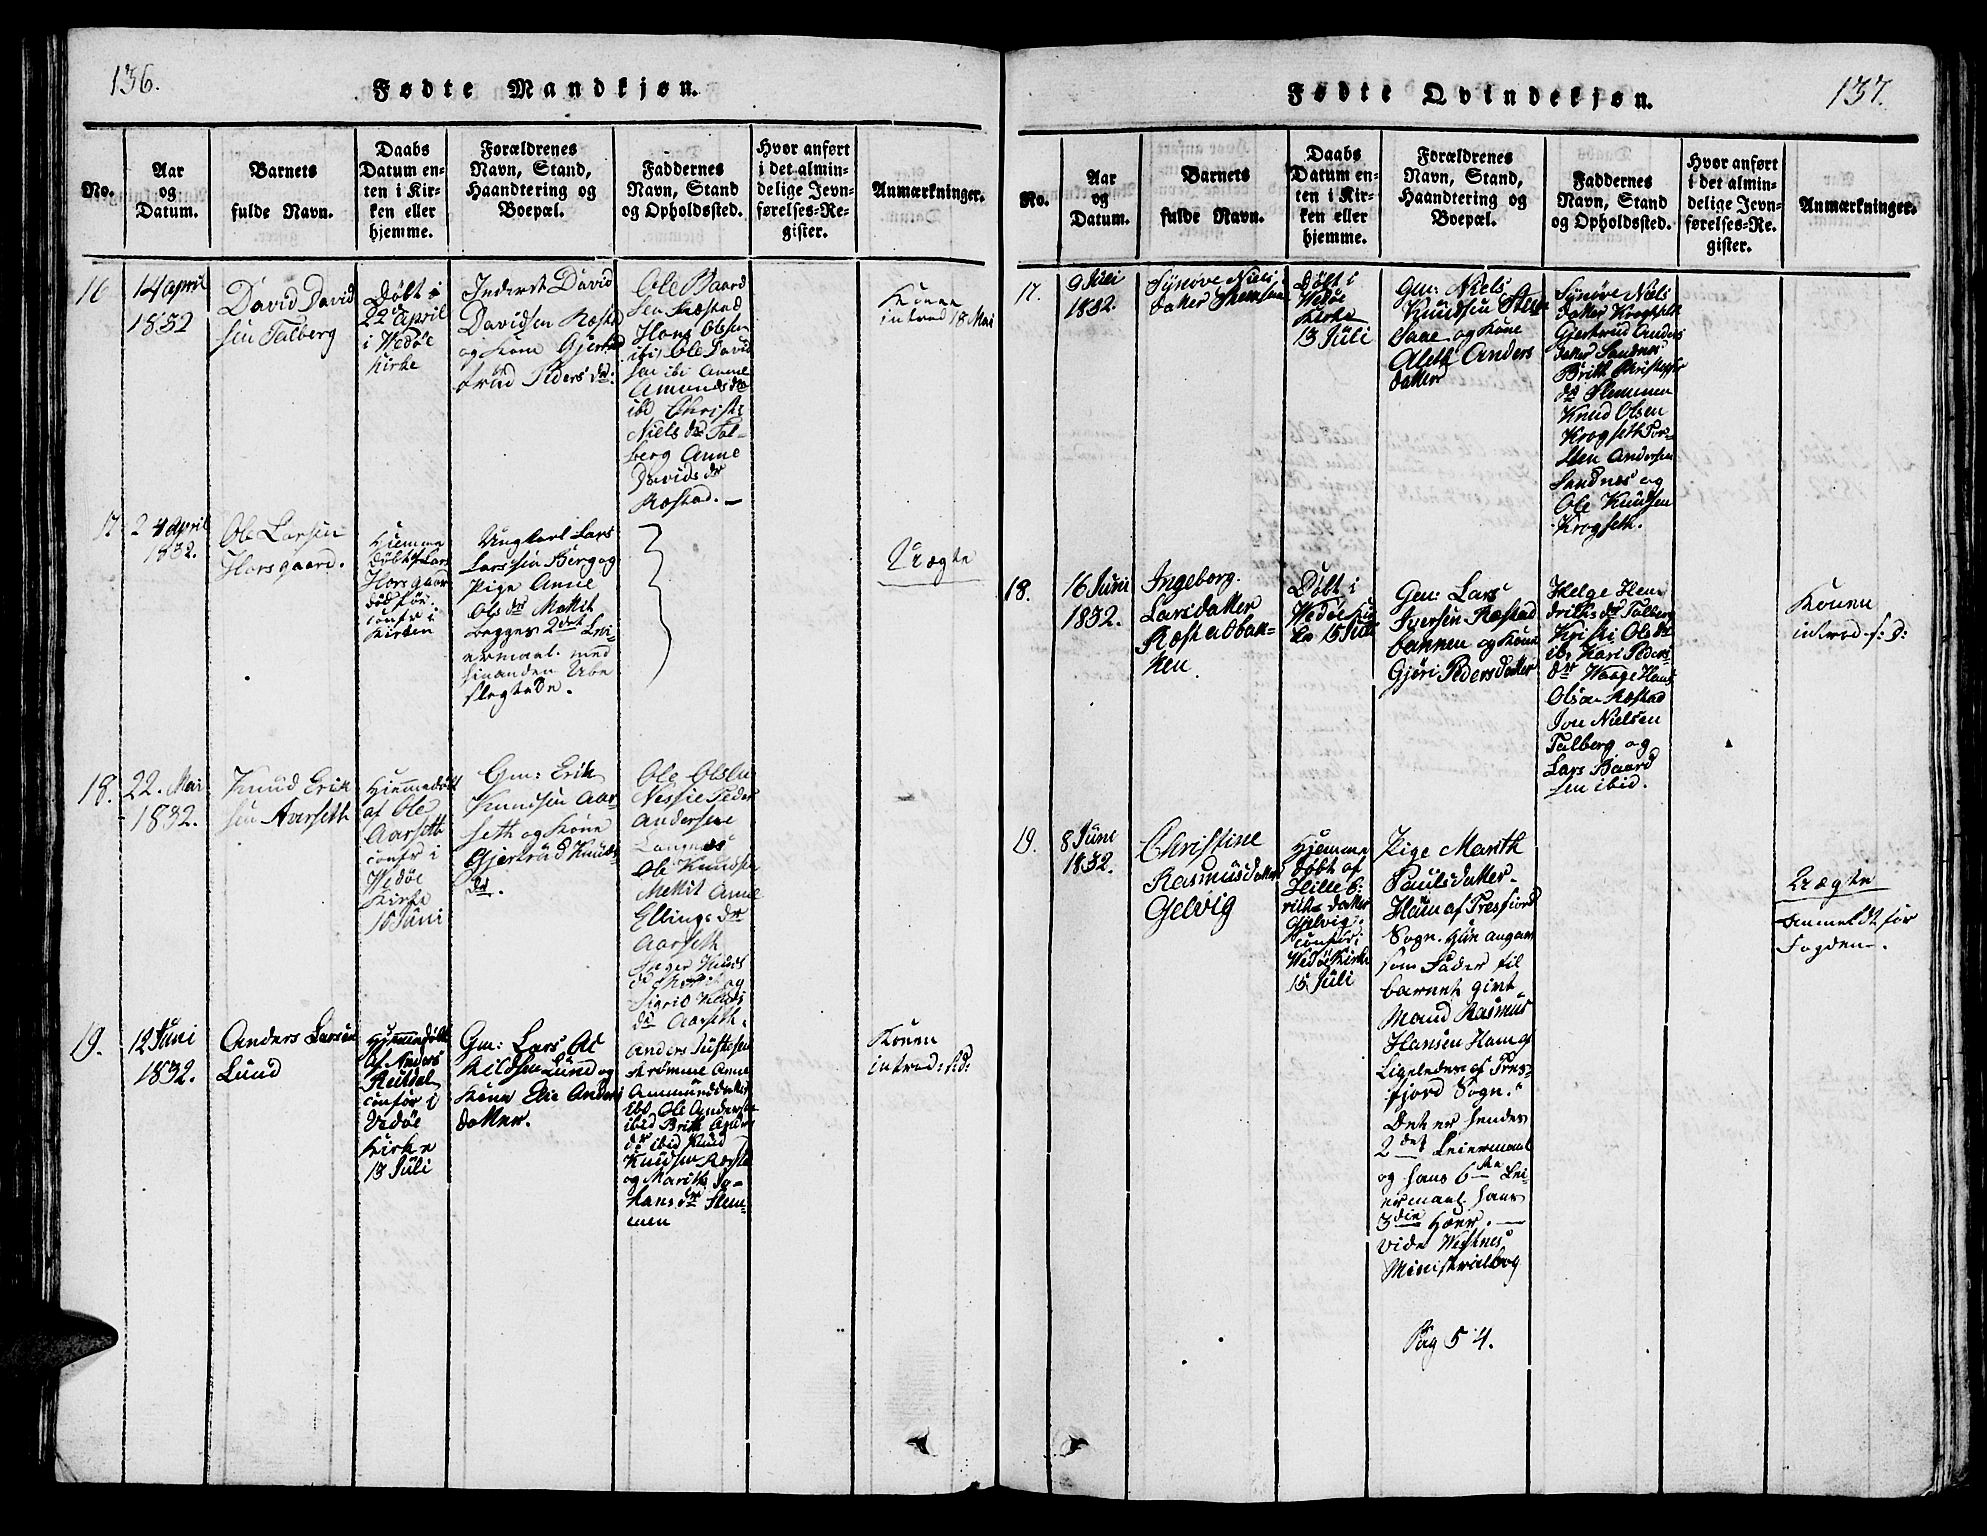 136.
Fødte Mandkjøn.
No.
Aar
og
Datum.
Barnets
fulde Navn.
Daabs
Datum en-
ten i Kir-
ken eller
hjemme.
Forældrenes
Navn, Stand,
Haandtering og
Boepæl.
Faddernes
Navn, Stand
og Opholdssted.
Hvor anført
i det almin-
delige Jevn-
førelses-Re-
gister.
Anmærkninger.
16
14 april
1832
David David
sen Talberg
Døbt i
22 April
i Wedøe
Kirke
Inderst David
Davidsen Røstad
og Kone Gjert
trud Peders dr:
Ole Baard
sen Røstad
Hans Olsen
ibi Ole David
sen ibi Anne
Amunds dr
ibd Christi
Niels dr Tal-
berg Anne
Davids dr
Røstad. —
Konen
introd 18 Mai
17
24 april
1832.
Ole Larsen
Horsgaard.
Hiemme
døbt af Lars
Horsgaar
død før
confr i
Kirken
Ungkarl Lars
Larssen Berg og
Pige Anne
Ols dr Mettit
begges 2det Lei-
ermaal med
hinanden Ube
slegtede.
Uægte
18.
22. Mai
1832.
Knud Erik
sen Aarseth
Hiemmedøbt
af Ole
Aarseth
confr i
Wedøe
Kirke
10 Juni
Gm: Erik
Knudsen Aar-
seth og Kone
Gjertrud Knuds
dr.
Ole Olsen
Nessie Peder
Andersen
Langnæs
Ole Knudsen
Mettit Anne
Ellings dr
Aarseth
Knuds
og
Sigrid Knuds
dr Aarseth.
19.
12 Juni
1832.
Anders Larsen
Lund
Hjemmedøbt
af Anders
confør i
Vedøe
Kirke
13 Juli
Gm: Lars Ol
Lund og
Kone Elie Anders
datter.
Anders Justesen
Strømme Anne
Ammundsdatter
Ibd Ole Andersen
ibid Britt Anders
dr ibid Knud
Knudsen Røsta
og Marith Jo-
hans dr Flem-
men
Konen
introd: s.d:
137.
Fødte Qvindekjøn.
No.
Aar
og
Datum.
Barnets
fulde Navn.
Daabs
Datum en-
ten i Kir-
ken eller
hjemme.
Forældrenes
Navn, Stand,
Haandtering og
Boepæl.
Faddernes
Navn, Stand
og Opholdssted.
Hvor anført
i det almin-
delige Jevn-
førelses-Re-
gister.
Anmærkninger.
17.
9 Juli
1832.
Synøve Niels
datter
Døbt i
Wedøe
Kirke
13 Juli
Gm: Niels
Knudsen
og Kone
Aleth Anders
datter
Synøve Niels
datter Krogseth
Gjertrud Anders
datter Sandnes
Britt Christopher
dr Flemmen
Knud Olsen
Krogseth Tor-
sten Andersen
Sandnæs og
Ole Knudsen
Krogseth.
18.
16 Juni
1832.
Ingeborg
Larsdatter
Røstadbak-
ken
Døbt i
Wedøe Kir
ke 15 Juli
Gm: Lars
Iversen Røstad
bakken og Kone
Gjøri Pedersdatter
Helge Hen
driks dr Talberg
Kristi Ols dr
ib: Kari Peders-
dr Waage Hans
Olsen Røstad
Jon Nielsen
Talberg og
Lars Baard
sen ibid.
Konen
introd. s: D:
19.
8 Juni
1832.
Christine
Rasmusdatter
Gelvig
Hjemme
døbt af
Hille
datter
Gjelvig
confør:
Wedøe Kirke
15 Juli
Pige Marith
Paulsdatter
Ham af Tresfiord
Sogn. Hun angav
som Fader til
barnet gint
Mand Rasmus
Hansen Ham og
Ligeledes af Tres-
fjord Sogn.
Det er hendes
2det Leiermaal
og hans 6te Lei-
ermaal hans
3die Hoer. —
vide Westnes
Ministrialbog
Pag 54.
Uægte
anmeldt for
Fogden.